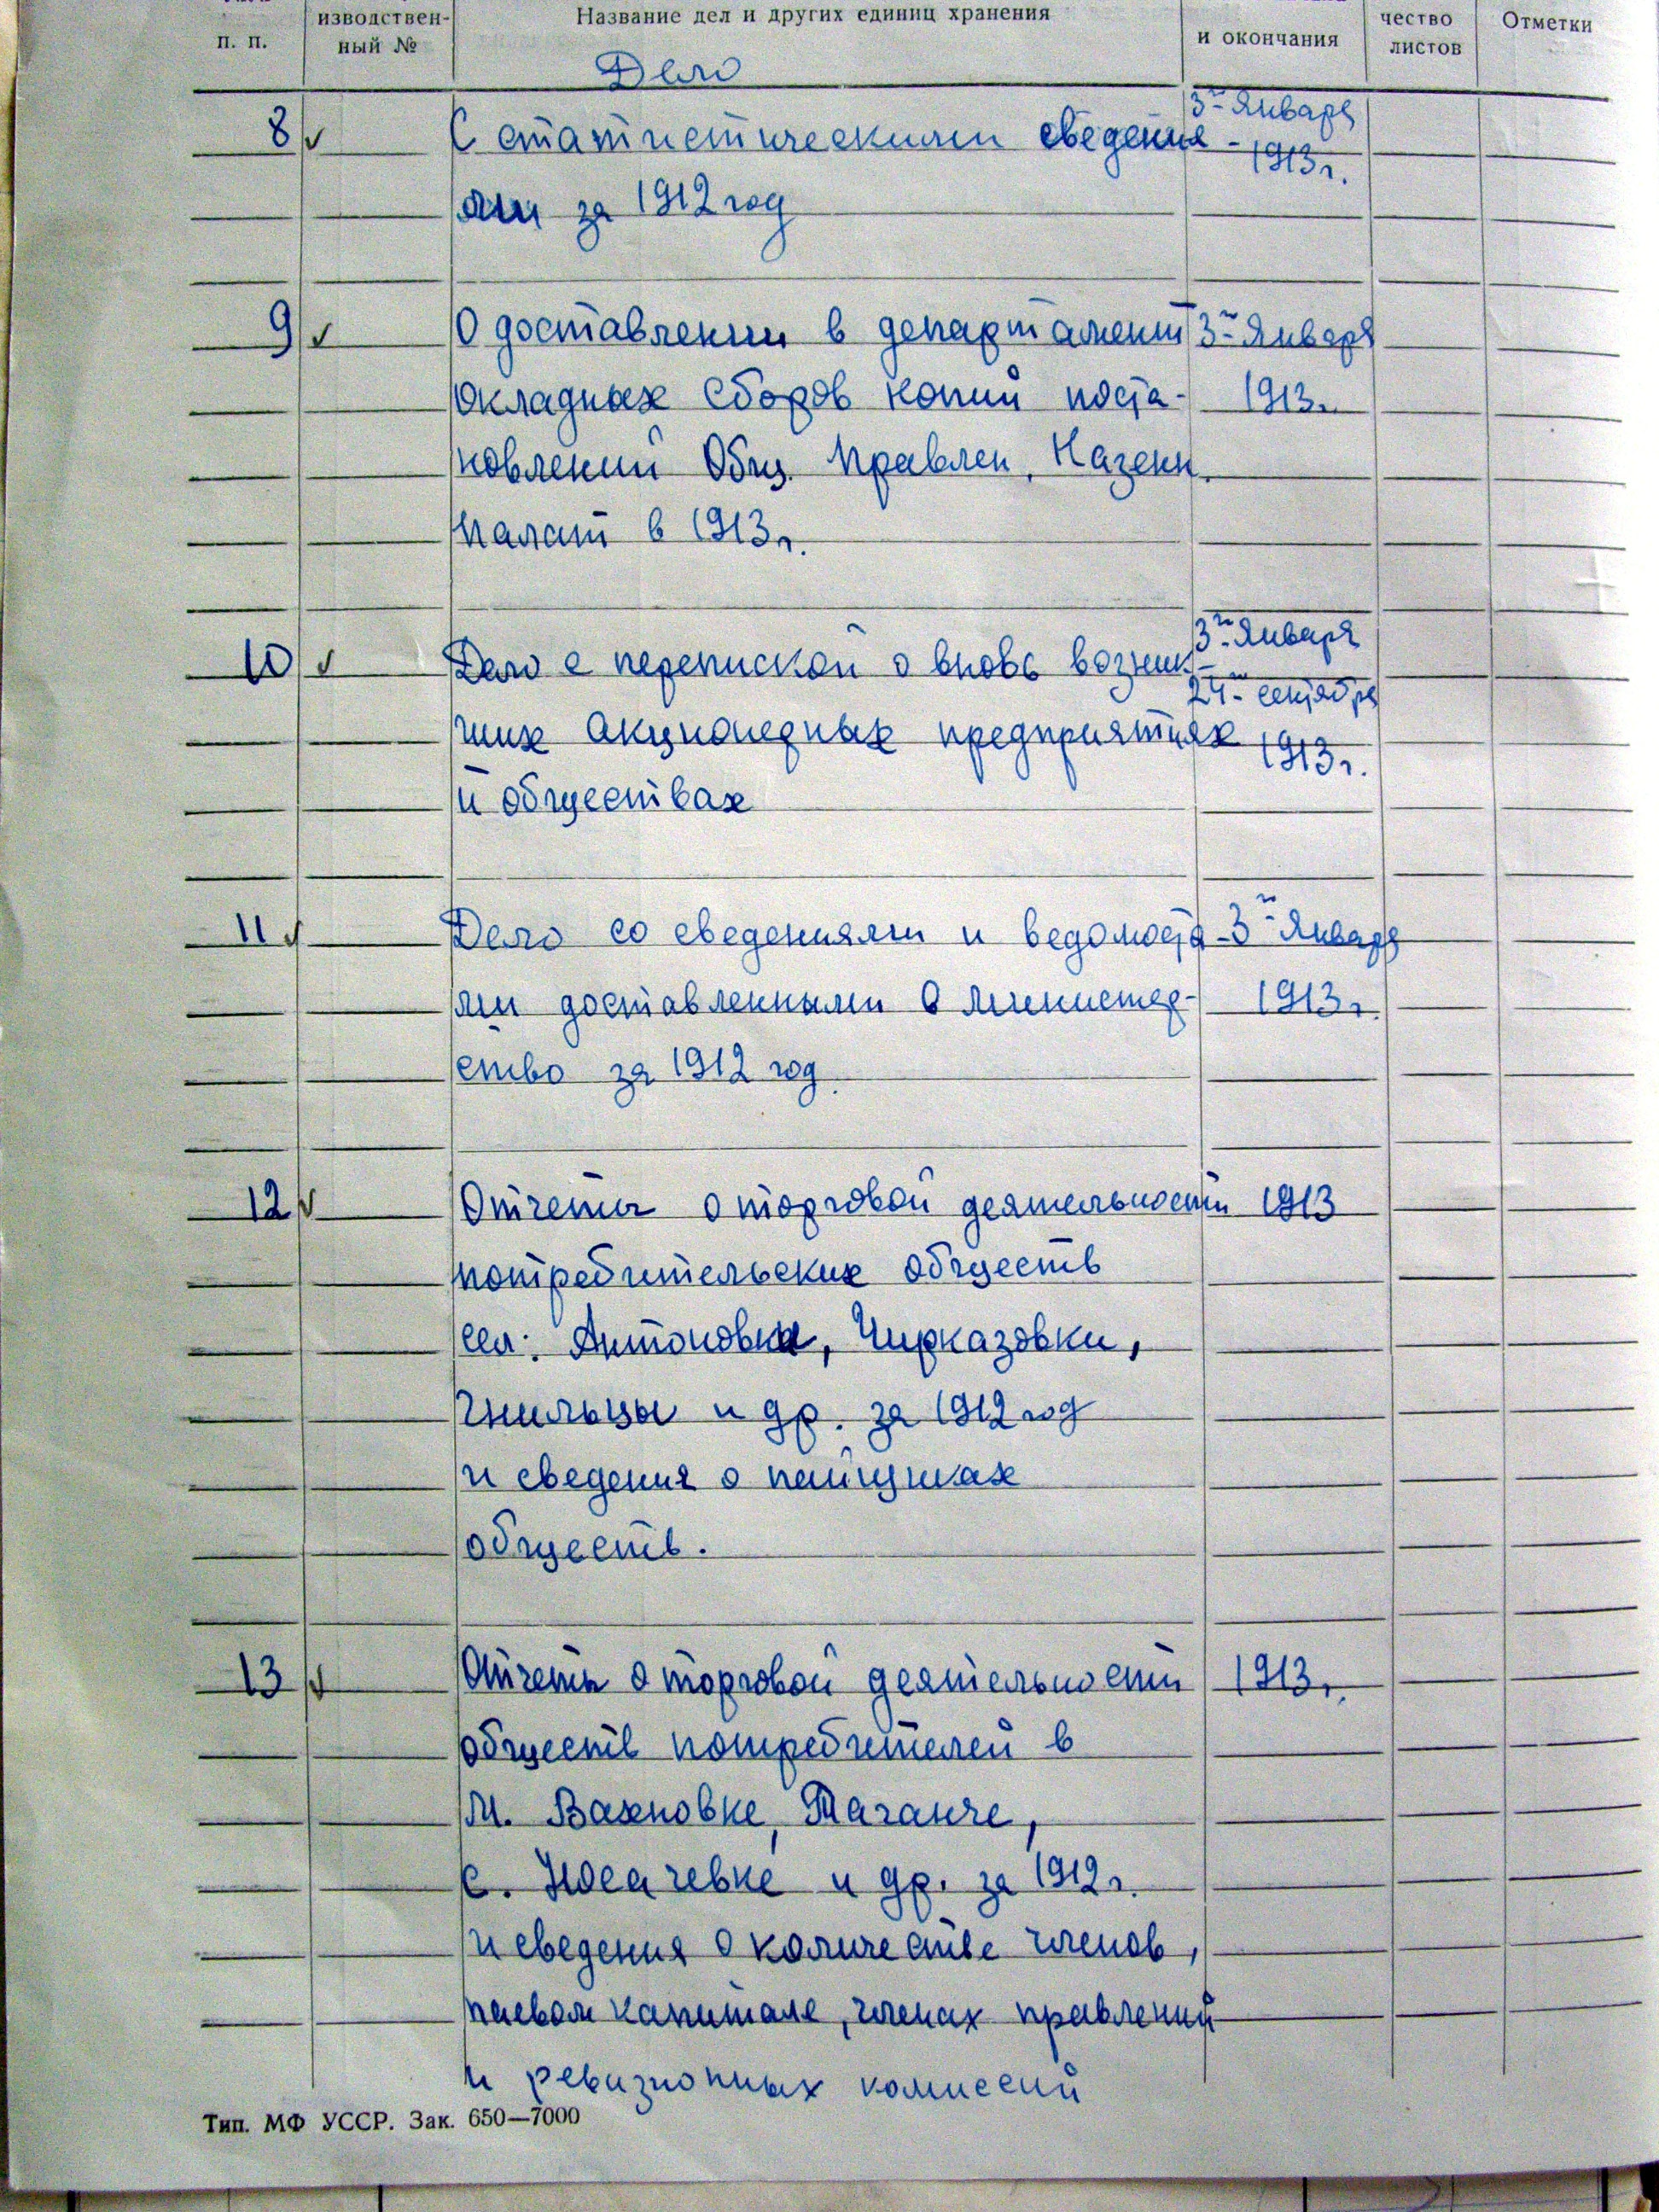 п. п.
изводствен-
ный №
Название дел и других единиц хранения
и окончания
чество
листов
Отметки
Дело
8 ✓ С статистическими сведения- 3го Января
ми за 1912 год 1913 г.
9 ✓ О доставлении в департамент 3го Января
окладных сборов копий поста- 1913 г.
новлений Общ. Правлен. Казенн.
Палат в 1913 г.
10 ✓ Дело с перепиской о вновь возник- 3го Января
24го сентября
ших акционерных предприятиях 1913 г.
и обществах
11 ✓ Дело со сведениями и ведомостя- 3го Января
ми доставленными в министер- 1913 г.
ство за 1912 год.
12 ✓ Отчеты о торговой деятельности 1913
потребительских обществ
сел: Антоновки, Чирказовки,
Гнильцы и др. за 1912 год
и сведения о пайщиках
обществ.
13 ✓ Отчеты о торговой деятельности 1913 г.
обществ потребителей в
м. Вахновке, Таганче,
с. и др. за 1912 г.
и сведения о количестве членов,
паевом капитале, членах правлений
и ревизионных комиссий
Тип. МФ УССР. Зак. 650—7000